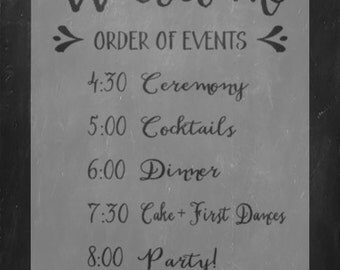 Welcome
ORDER OF EVENTS
4:30 Ceremony
5:00 Cocktails
6:00 Dinner
7:30 Cake + First Dances
8:00 Party!